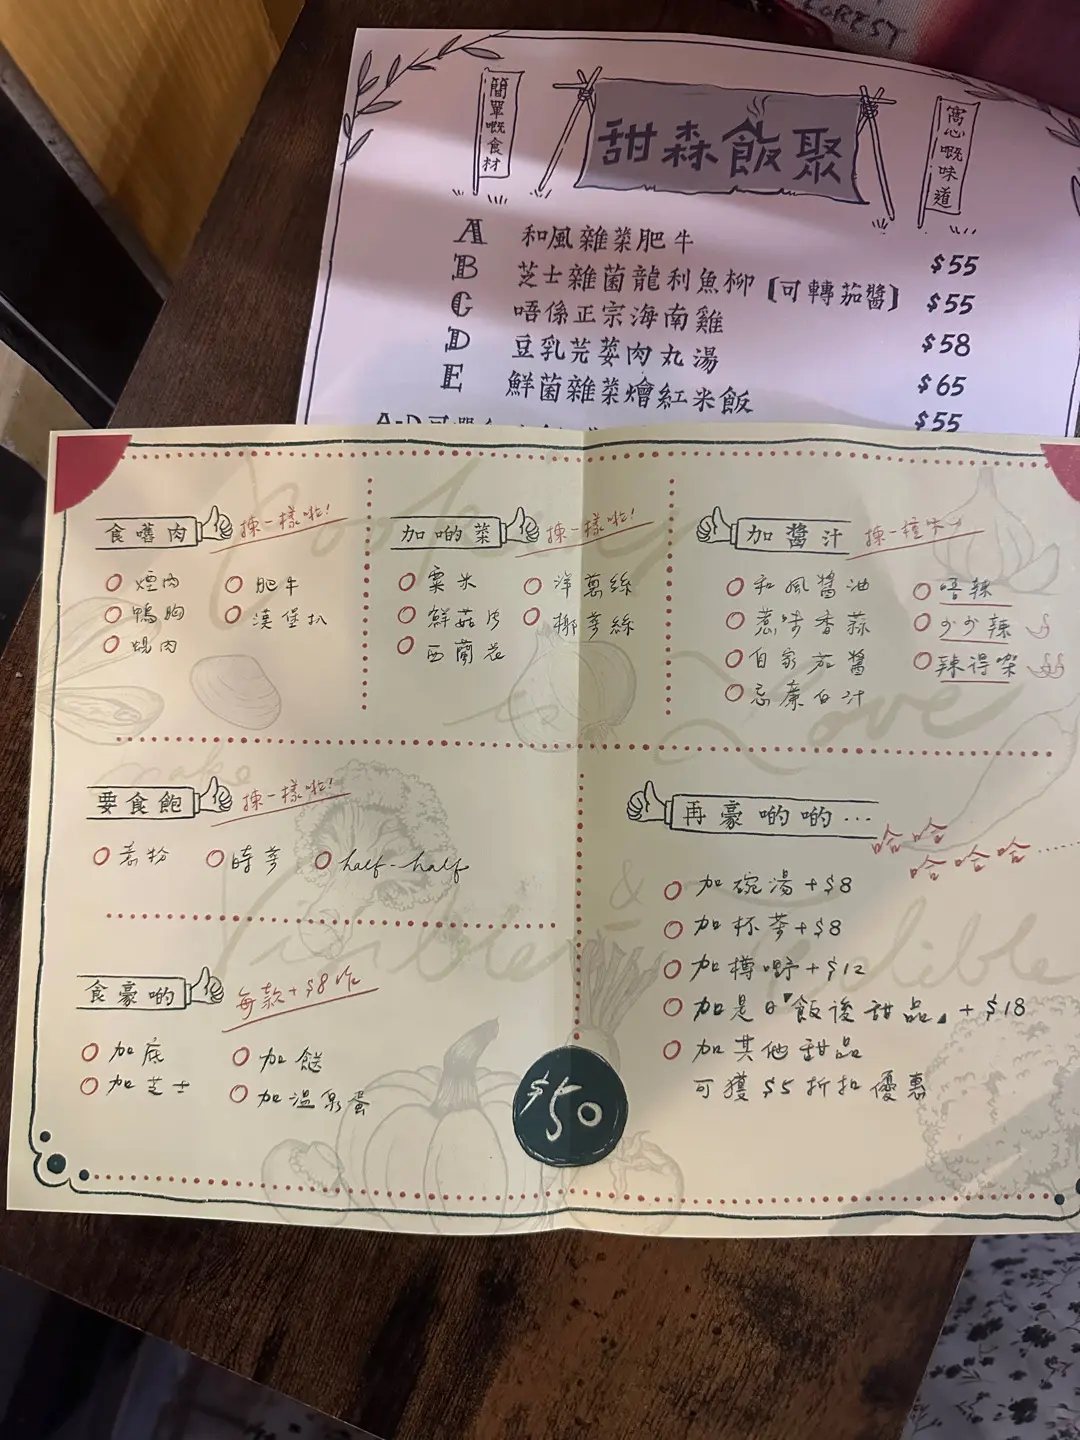 FOREST
簡單嘅食材
甜森飯聚
窩心嘅味道
A 和風雜菜肥牛 $55
B 芝士雜菌龍利魚柳 [可轉茄醬] $55
C 唔係正宗海南雞 $58
D 豆乳芫荽肉丸湯 $65
E 鮮菌雜菜燴紅米飯 $55
A-D可
食嚿肉 揀一樣啦!
煙肉 肥牛
鴨胸 漢堡扒
燒肉
加啲菜 揀一樣啦!
粟米 洋蔥絲
鮮菇片 椰菜絲
西蘭花
加醬汁 揀一種
和風醬油 唔辣
惹味香蒜 少少辣
自家茄醬 辣得㗎
忌廉白汁
要食飽 揀一樣啦!
意粉 時菜 half-half
食豪啲 每款+$8咋
加底 加餸
加芝士 加溫泉蛋
$50
再豪啲啲…
哈哈
哈哈哈……
加碗湯+$8
加杯茶+$8
加樽嘢+$12
加是日「飯後甜品」+$18
加其他甜品
可獲$5折扣優惠
Visible & edible
is Love
make